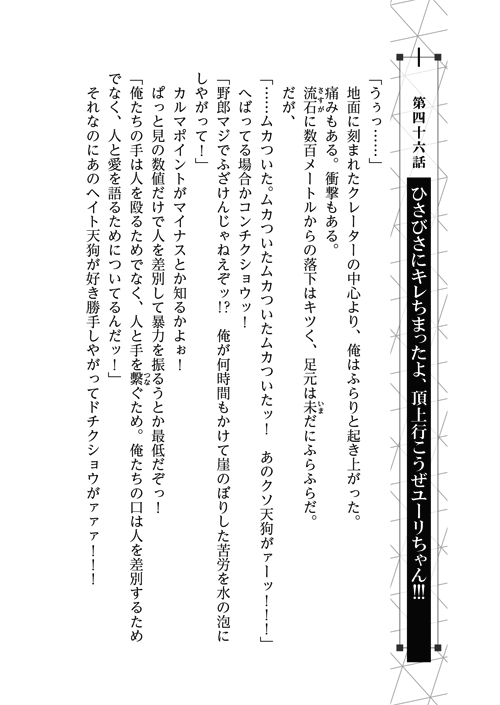 第四十六話
ひさびさにキレちまったよ、頂上行こうぜユーリちゃん!!!
「うぅっ……」
地面に刻まれたクレーターの中心より、俺はふらりと起き上がった。
痛みもある。衝撃もある。
流石に数百メートルからの落下はキツく、足元は未だにふらふらだ。
だが、
「……ムカついた。ムカついたムカついたムカついたッ！　あのクソ天狗がァーッ！！！」
へばってる場合かコンチクショウッ！
「野郎マジでふざけんじゃねえぞッ!?　俺が何時間もかけて崖のぼりした苦労を水の泡に
しやがって！」
カルマポイントがマイナスとか知るかよぉ！
ぱっと見の数値だけで人を差別して暴力を振るうとか最低だぞっ！
「俺たちの手は人を殴るためでなく、人と手を繋ぐため。俺たちの口は人を差別するため
でなく、人と愛を語るためについてるんだッ！」
それなのにあのヘイト天狗が好き勝手しやがってドチクショウがァァァ！！！